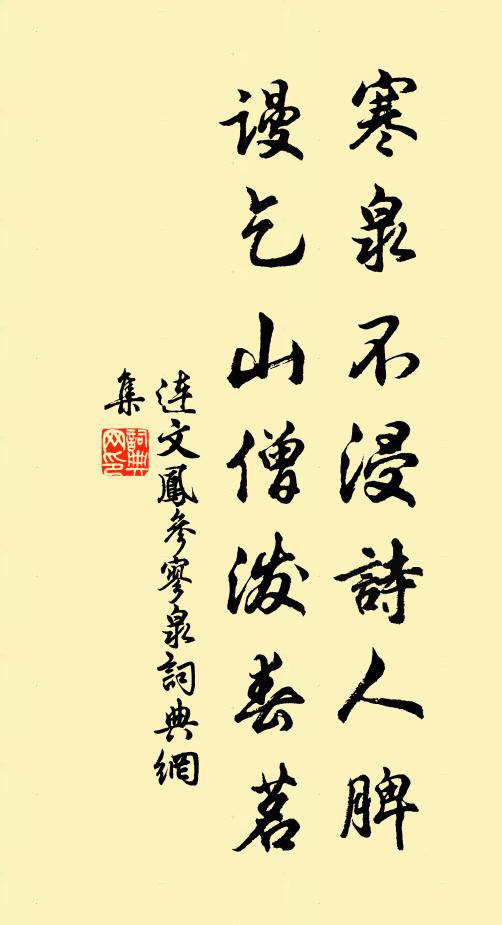 寒泉不浸詩人脾
謾乞山僧潑春茗
連文鳳參寥泉詞典網
集
詞典
网印